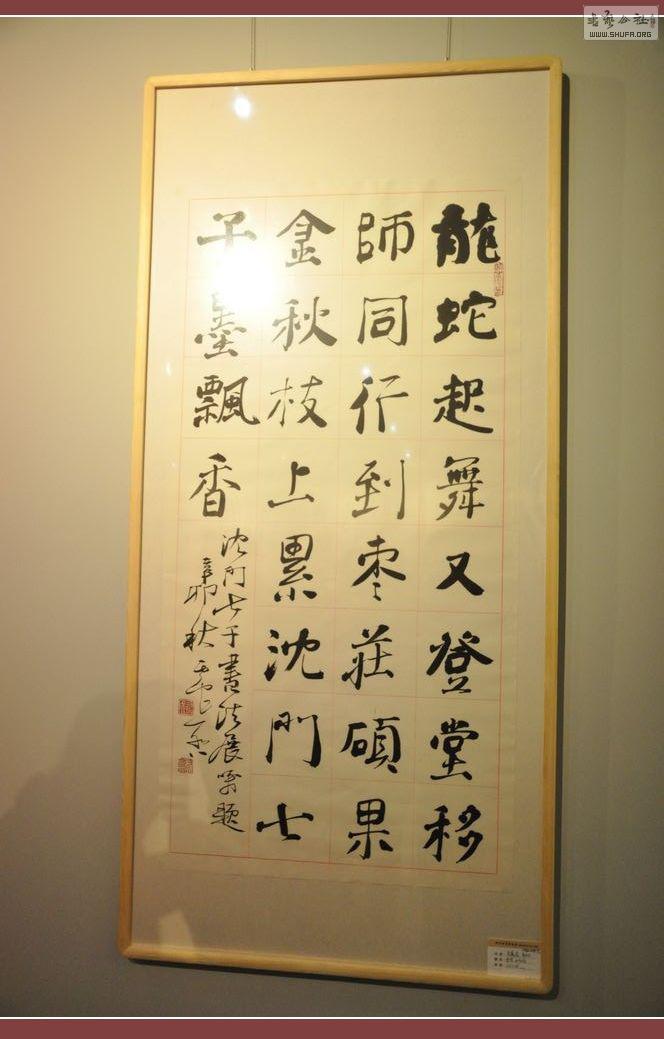 書藝公社
WWW.SHUFA.ORG
龍蛇起舞又登堂移
師同行到枣莊碩果
金秋枝上累沈門七
子墨飄香
沈門七子書法展嘱題
辛卯秋